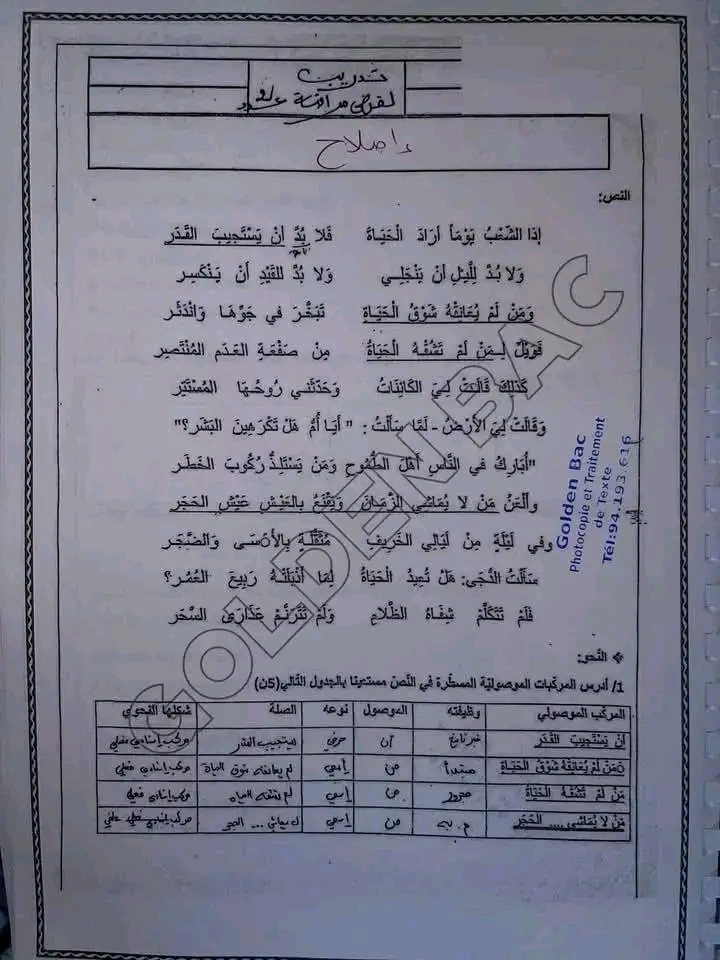 تدريب
إصلاح
النص:
إذا الشّعْبُ يَوْماً أرَادَ الْحَيَاةَ فَلا بُدَّ أنْ يَسْتَجِيبَ القَدَر
وَلا بُدَّ لِلَّيْلِ أنْ يَنْجَلِـي وَلا بُدَّ للقَيْدِ أَنْ يَنْكَسِـر
وَمَنْ لَمْ يُعَانِقْهُ شَوْقُ الْحَيَاةِ تَبَخَّرَ في جَوِّهَا وَانْدَثَـر
فَوَيْلٌ لِـمَنْ لَمْ تَشُقْـهُ الْحَيَاةُ مِنْ صَفْعَةِ العَدَمِ المُنْتَصِر
كَذلِكَ قَالَتْ لِيَ الكَائِنَاتُ وَحَدّثَنـي رُوحُـهَا المُسْتَتِر
وَقَالَتْ لِيَ الأَرْضُ - لَمَّا سَأَلْتُ : " أَيَـا أُمُّ هَلْ تَكْرَهِينَ البَشَر؟"
"أُبَارِكُ في النَّاسِ أَهْلَ الطُّمُوحِ وَمَنْ يَسْتَلِذُّ رُكُوبَ الخَطَر
وأَلْعَنُ مَنْ لا يُمَاشِي الزَّمَانَ وَيَقْنَعُ بِالعَيْشِ عَيْشِ الحَجَر
وفي لَيْلَةٍ مِنْ لَيَالِي الخَرِيفِ مُثَقَّلَةٍ بِالأَسَى وَالضَّجَر
سَأَلْتُ الدُّجَى: هَلْ تُعِيدُ الْحَيَاةُ لِمَا أَذْبَلَتْهُ رَبِيعَ العُمُر؟
فَلَمْ تَتَكَلَّمْ شِفَاهُ الظَّلامِ وَلَمْ تَتَرَنَّمْ عَذَارَى السَّحَر
Golden Bac
Photocopie et Traitement
de Texte
Tél:94.193.616
GOLDEN BAC
❖ النّحو:
1/ أدرس المركّبات الموصوليّة المسطّرة في النّص مستعينا بالجدول التّالي(5ن)
المركّب الموصولي وظيفته الموصول نوعه الصلة شكلها النّحوي
أنْ يَسْتَجِيبَ القَدَر أن حرفي يستجيب القدر مركب إسنادي فعلي
مَنْ لَمْ يُعَانِقْهُ شَوْقُ الْحَيَاةِ مبتدأ من إسمي لم يعانقه شوق الحياة مركب إسنادي فعلي
مَنْ لَمْ تَشُقْـهُ الْحَيَاةُ مجرور من إسمي لم تشقه الحياة مركب إسنادي فعلي
مَنْ لا يُمَاشِي .... الحَجَر م. به من إسمي لا يماشي ... الحجر مركب إسنادي فعلي